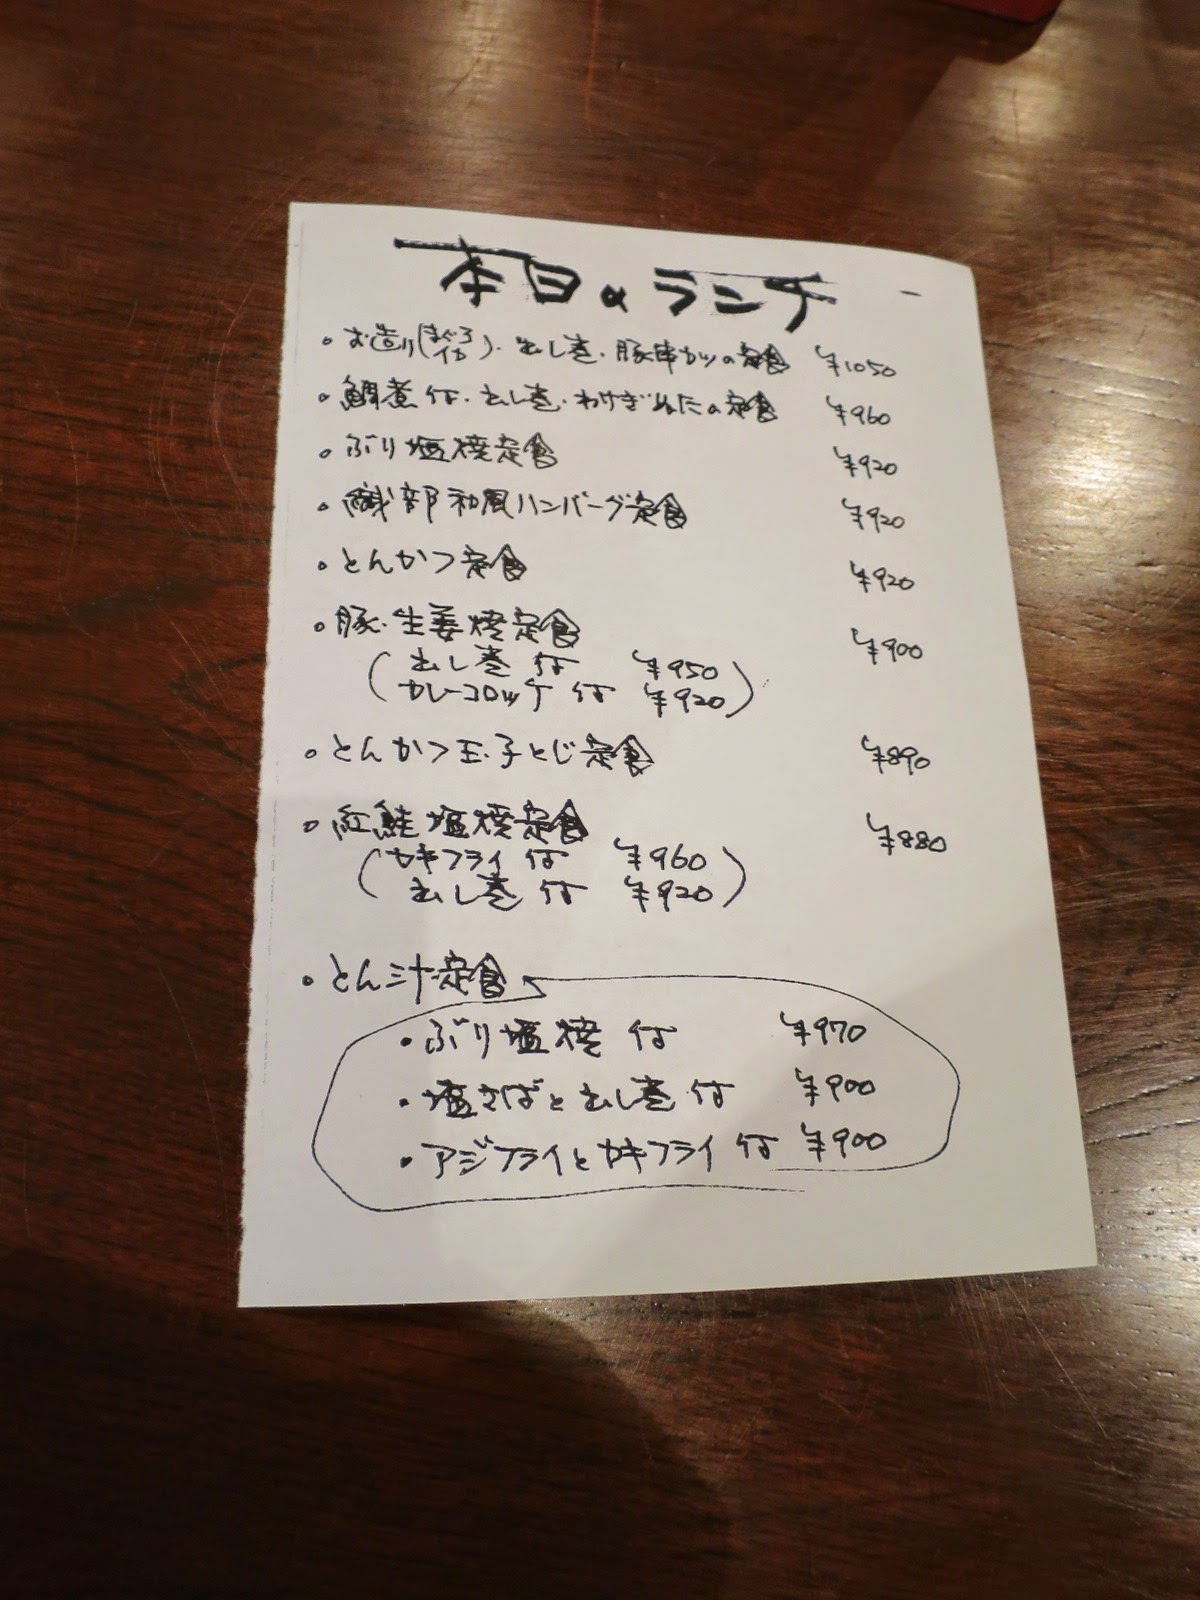 本日のランチ
・お造り(まぐろ イカ)・出し巻・豚串カツの定食 ¥1050
・鯛煮付・出し巻・わけぎぬたの定食 ¥960
・ぶり塩焼定食 ¥920
・織部和風ハンバーグ定食 ¥920
・とんかつ定食 ¥920
・豚・生姜焼定食 ¥900
(出し巻付 ¥950
カレーコロッケ付 ¥920)
・とんかつ玉子とじ定食 ¥890
・紅鮭塩焼定食 ¥880
(カキフライ付 ¥960
出し巻付 ¥920)
・とん汁定食
・ぶり塩焼付 ¥970
・塩さばと出し巻付 ¥900
・アジフライとカキフライ付 ¥900